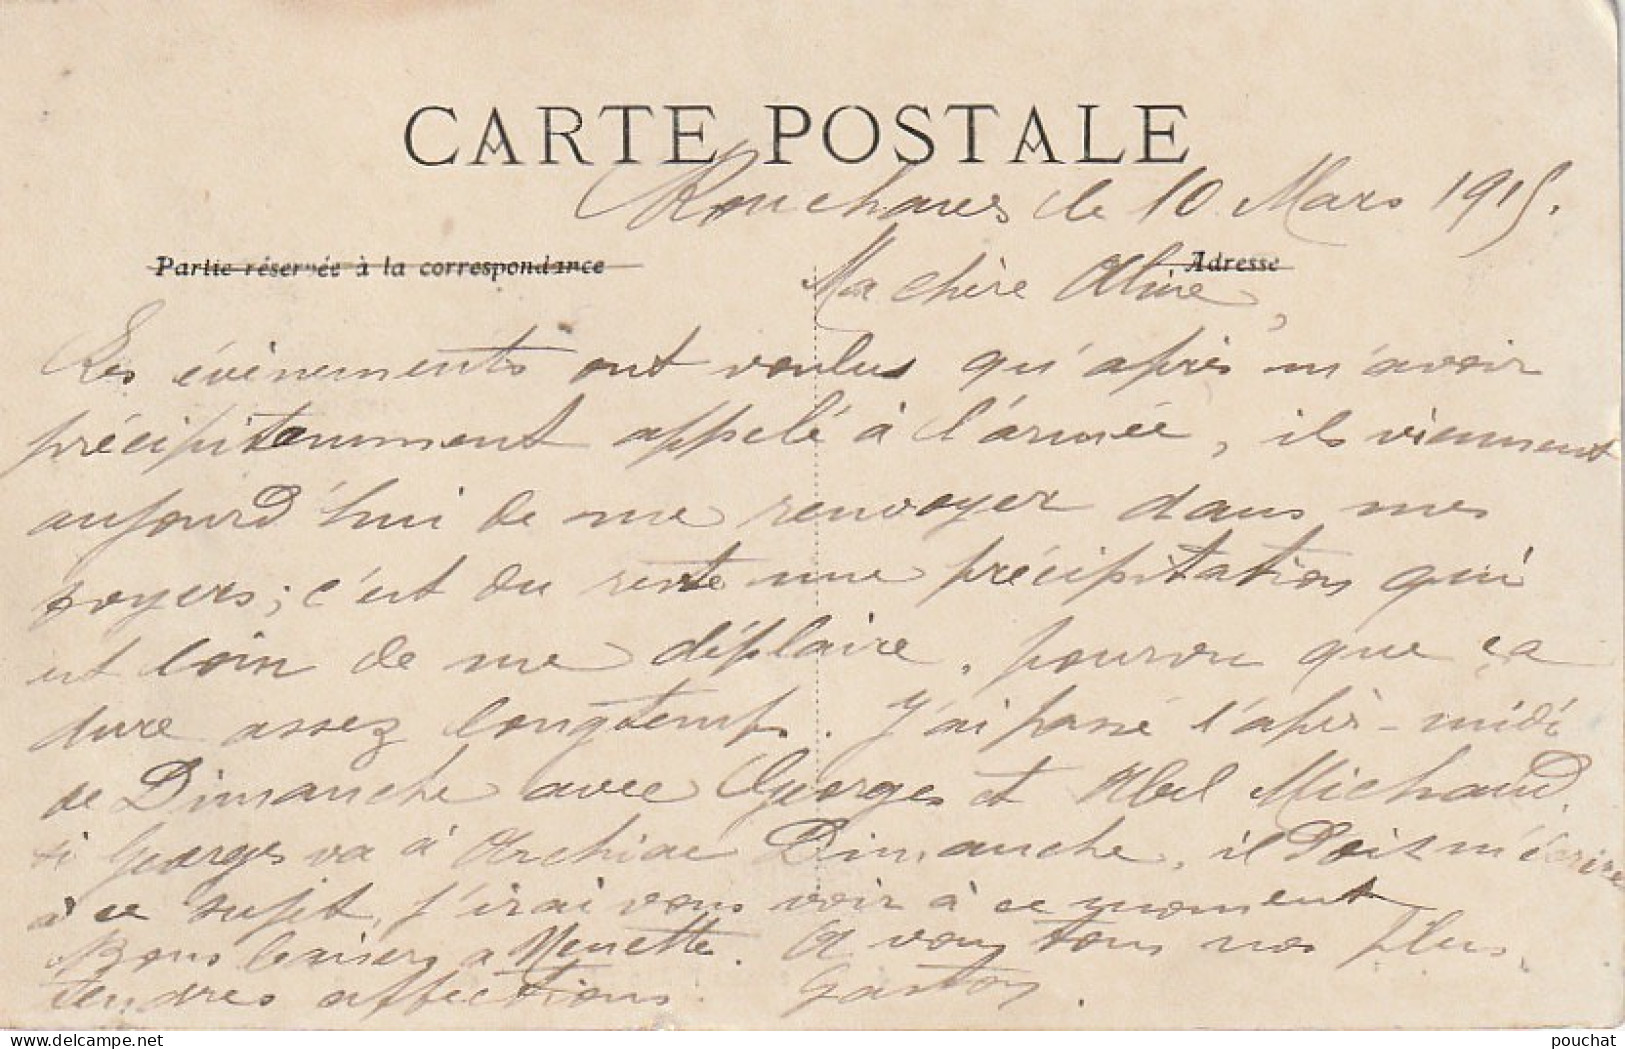 CARTE POSTALE
le 10 Mars 1915.
Partie réservée à la correspondance
Adresse
Ma chère Aline,
Les évènements ont voulus qu'après m'avoir
précipitemment appelé à l'armée, ils viennent
aujourd'hui de me renvoyer dans mes
foyers; c'est du reste une précipitation qui
est loin de me déplaire, pourvu que ça
dure assez longtemps. J'ai passé l'après-midi
de Dimanche avec Georges et Abel Michaud.
si Georges va à Archiac Dimanche, il doit m'écrire
à ce sujet, j'irai vous voir à ce moment
Bons baisers a Nenette. A vous tous nos plus
tendres affections. Gaston.
delcampe.net
pouchat